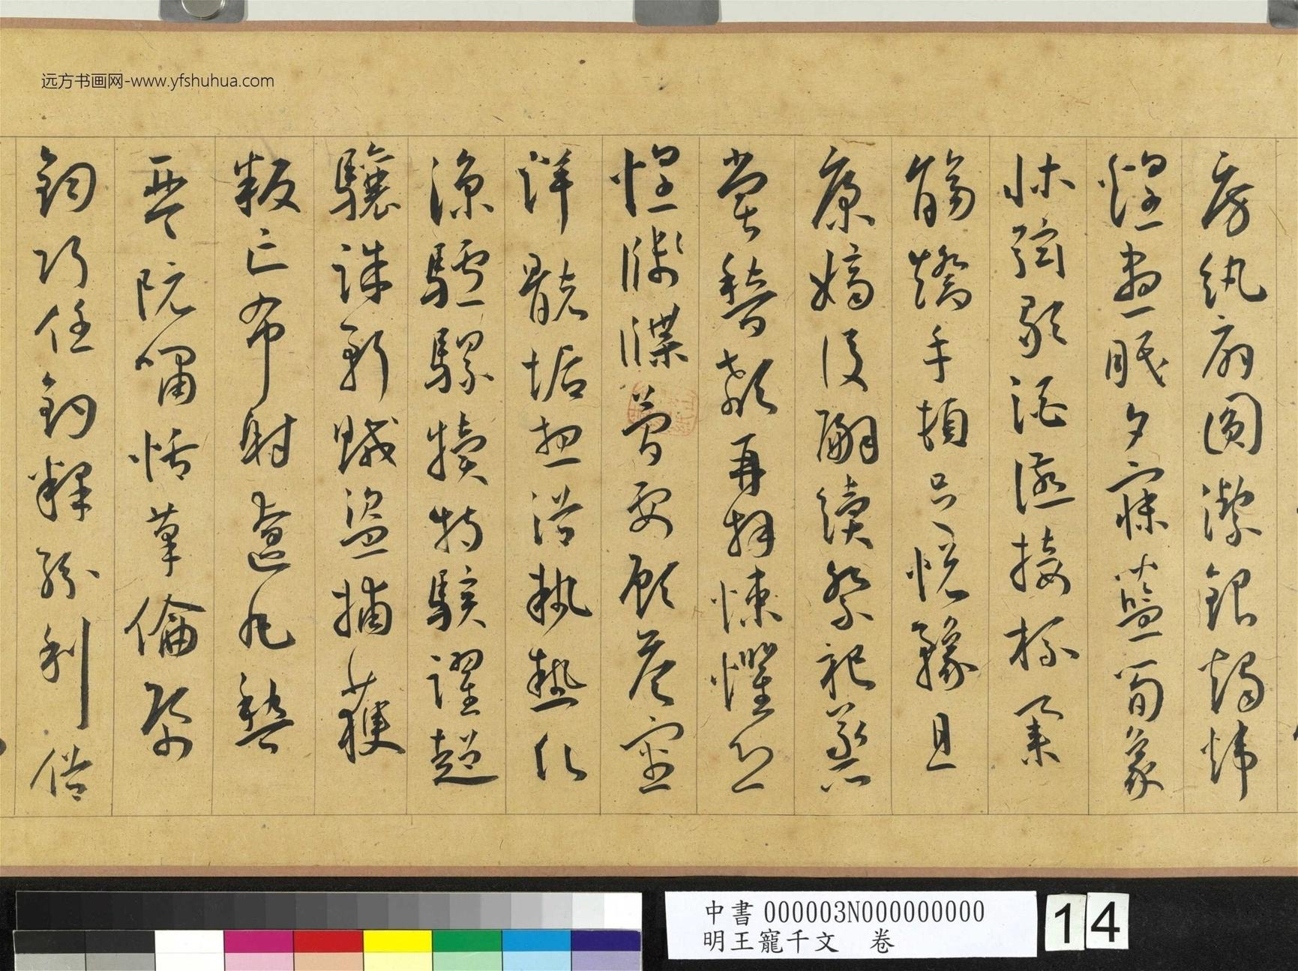 远方书画网-www.yfshuhua.com
房紈扇圓潔銀燭煒
煌晝眠夕寐藍筍象
牀弦歌酒讌接杯舉
觴矯手頓足悅豫且
康嫡後嗣續祭祀蒸
嘗稽顙再拜悚懼恐
惶牋牒簡要顧答審
詳骸垢想浴執熱願
涼驢騾犢特駭躍超
驤誅斬賊盜捕獲
叛亡布射遼丸嵇
琴阮嘯恬筆倫紙
鈞巧任釣釋紛利俗
中書 000003N000000000
明王寵千文 卷
14